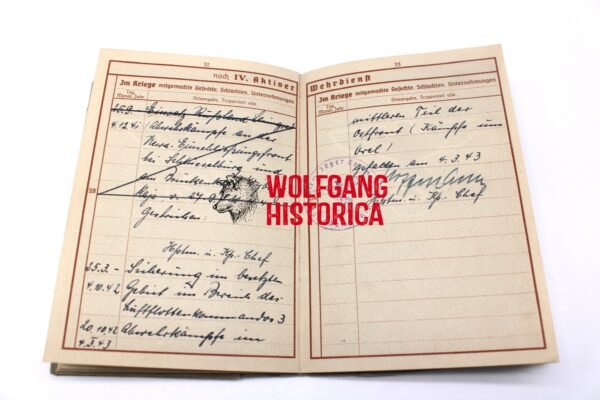 32
noch IV. Aktiver
Im Kriege mitgemachte Gefechte, Schlachten, Unternehmungen
Tag, Monat, Jahr
Ortsangabe, Truppenteil usw.
25.9. Einsatz Rußland
4.12.41 Abwehrkämpfe an der
Newa-Einschließungsfront
bei Schlüsselburg und
28
Gestrichen:
Hptm. u. Kp.-Chef
25.3.- Sicherung im besetzten
4.10.42 Gebiet im Bereich des
Luftflottenkommandos 3
20.10.42 Abwehrkämpfe im
4.3.43
33
Wehrdienst
Im Kriege mitgemachte Gefechte, Schlachten, Unternehmungen
Tag, Monat, Jahr
Ortsangabe, Truppenteil usw.
mittleren Teil der
Ostfront (Kämpfe um
Orel)
gefallen am 4.3.43
Hptm. u. Kp. Chef
WOLFGANG
HISTORICA